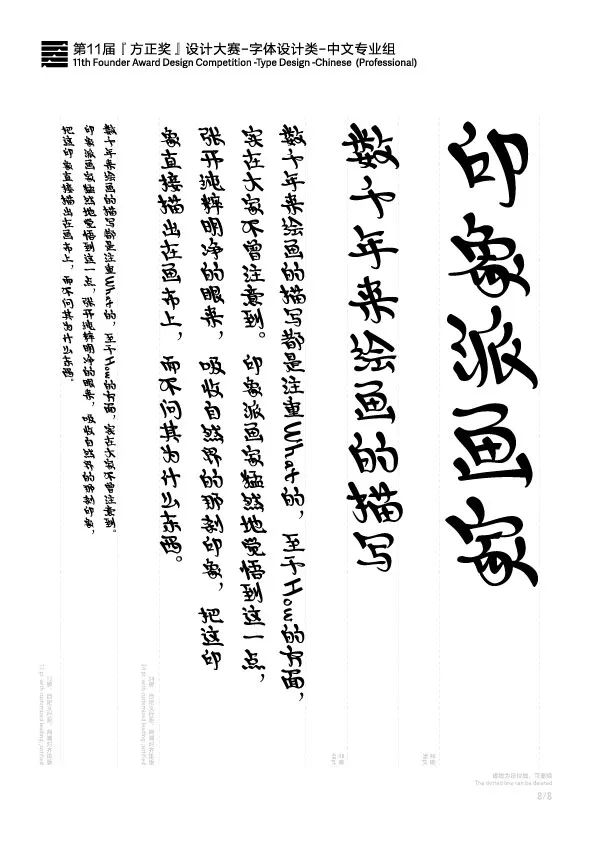 第11届『方正奖』设计大赛-字体设计类-中文专业组
11th Founder Award Design Competition -Type Design -Chinese (Professional)
印象派画家
数十年来绘画的描写
数十年来绘画的描写都是注重What的，至于How的方面，
实在大家不曾注意到。印象派画家猛然地觉悟到这一点，
张开纯粹明净的眼来，吸收自然界的那刹印象，把这印
象直接描出在画布上，而不问其为什么东西。
数十年来绘画的描写都是注重What的，至于How的方面，实在大家不曾注意到。
印象派画家猛然地觉悟到这一点，张开纯粹明净的眼来，吸收自然界的那刹印象，
把这印象直接描出在画布上，而不问其为什么东西。
The dotted line can be deleted
8/8